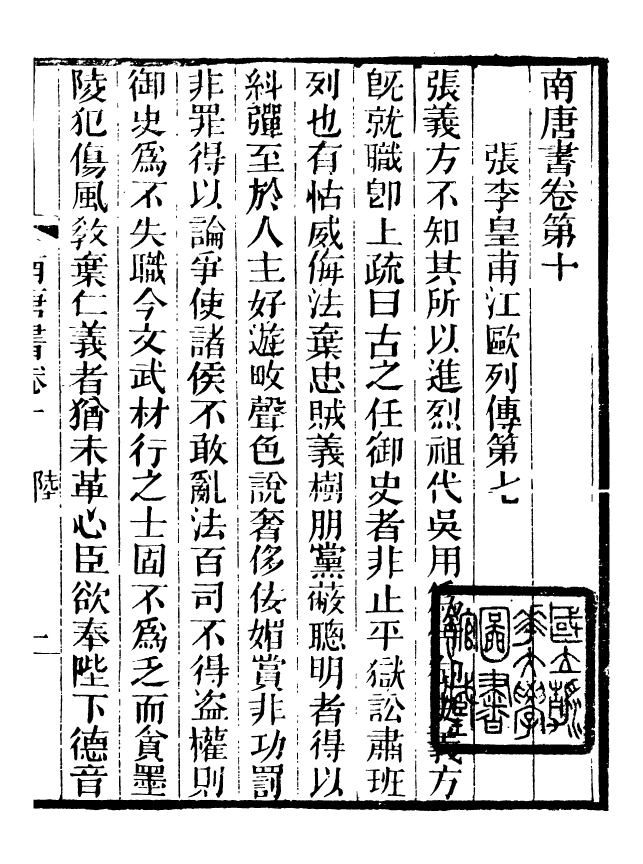 南唐書卷第十
張李皇甫江歐列傳第七
張義方不知其所以進烈祖代吳用義方
旣就職卽上疏曰古之任御史者非止平獄訟肅班
列也有怙威侮法棄忠賊義樹朋黨蔽聰明者得以
糾彈至於人主好遊畋聲色說奢侈佞媚賞非功罰
非罪得以論爭使諸侯不敢亂法百司不得盜權則
御史爲不失職今文武材行之士固不爲乏而貪墨
陵犯傷風敎棄仁義者猶未革心臣欲奉陛下德音
南唐書卷十 陸 一
國立清
華大學
圖書
館